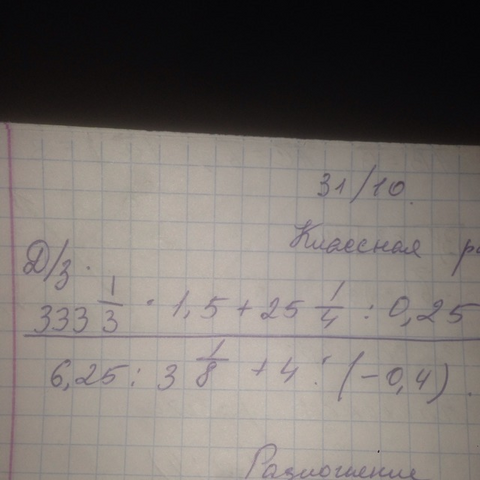 31/10.
Классная
Д/з.
333 1/3 · 1,5 + 25 1/4 : 0,25
6,25 : 3 1/8 + 4 : (-0,4).
Разложение